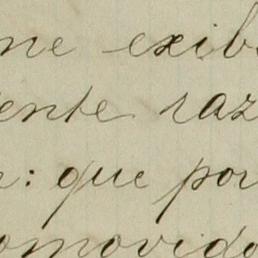 ne exib
ente raz
: que por
omovido